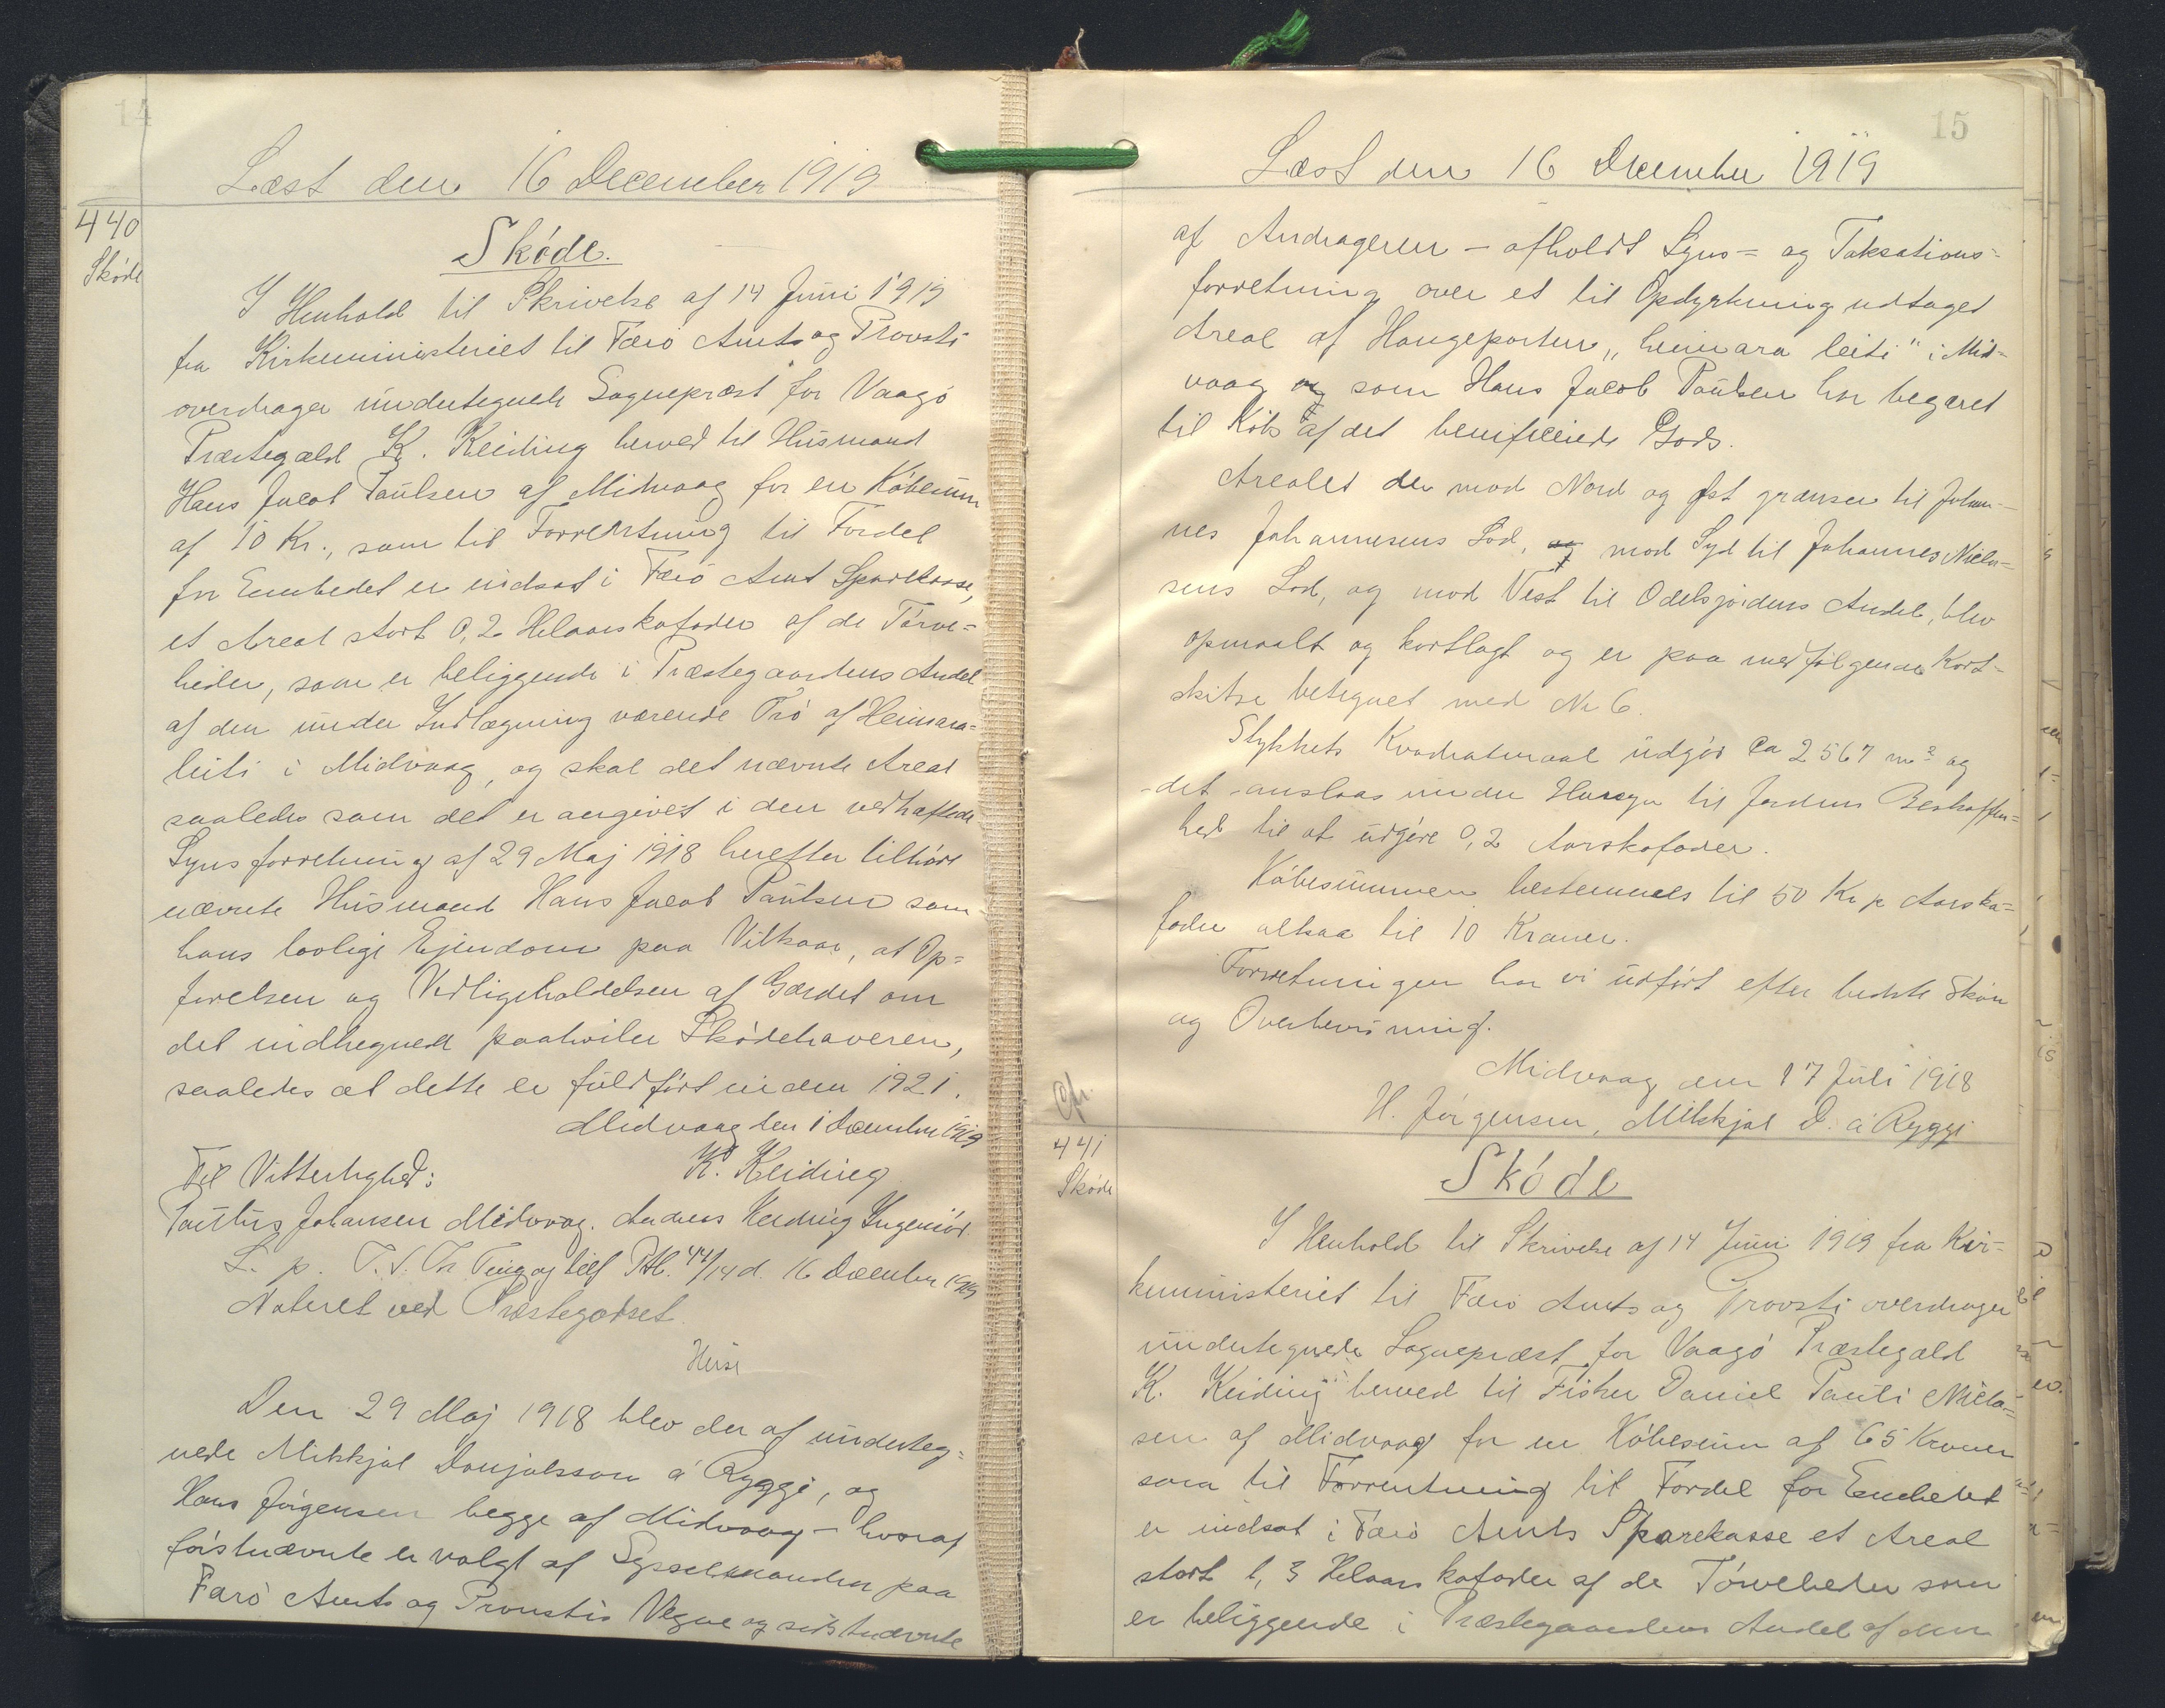 14
Læst den 16 December 1919
440
Skóde
Skóde.
I Henhold til Skrivelse af 14 Juni 1919
fra Kirkeministeriet til Færó Amts og Provsti
overdrager undertegnede Sognepræst for Vaagó
Præstegæld K. Keiding herved til Husmand
Hans Jacob Paulsen af Midvaag for en Kóbesum
af 10 Kr., som til Forrentning til Fordel
for Embedet er indsat i Færó Amt Sparekasse,
et Areal stort 0,2 Helaarskofoder af de Tórve=
heder, som er beliggende i Præstegaardens Andel
af den under Indlægning værende Tró af Heimara=
leiti i Midvaag, og skal det nævnte Areal
saaledes som det er angivet i den vedhæftede
Synsforretning af 29 Maj 1918 herefter tilhóre
nævnte Husmand Hans Jacob Paulsen som
hans lovlige Ejendom paa Vilkaar, at Op=
fórelsen og Vedligeholdelsen af Gærdet om
det indhegnede paahviler Skódehaveren,
saaledes at dette er fuldfórt inden 1921.
Midvaag den 1 December 1919
K. Keiding
Til Vitterlighed:
Paulus Johansen Midvaag. Andreas Keiding Ingeniór.
L. p. T. f. Th Ting og tilf Ptl. 44/14 d. 16 December 1919
Noteret ved Præstegodset.
Heise
Den 29 Maj 1918 blev der af underteg=
nede Mikkjal Danjalsson á Ryggi, og
Hans Jórgensen begge af Midvaag - hvoraf
fórstnævnte er valgt af Sysselmanden paa
Færó Amts og Provstis Vegne og sidstnævnte
15
Læst den 16 December 1919
af Andrageren - afholdt Syns= og Taksations=
forretning over et til Opdyrkning udtaget
Areal af Haugeparten "heimara leiti" i Mid=
vaag og som Hans Jacob Paulsen har begæret
til Kóbs af det benificerede Gods.
Arealet der mod Nord og Øst grænser til Johan=
nes Johannesens Lod, og mod Syd til Johannes Niela=
sens Lod, og mod Vest til Odelsjordens Andel, blev
opmaalt og kortlagt og er paa medfólgende Kort=
skitse betegnet med No 6.
Stykkets Kvadratmaal udgór Ca 2567 m² og
det anslaas under Hensyn til Jordens Beskaffen=
hed til at udgóre 0,2 Aarskofoder.
Kóbesummen bestemmes til 50 Kr pr Aarsko=
foder altsaa til 10 Kroner.
Forretningen har vi udfórt efter bedste Skón
og Overbevisning.
Midvaag den 17 Juli 1918
H. Jórgensen, Mikkjal D. á Ryggi
Cfr.
441
Skóde
Skóde
I Henhold til Skrivelse af 14 Juni 1919 fra Kir=
keministeriet til Færó Amts og Provsti overdrager
undertegnede Sognepræst for Vaagó Præstegæld
K. Keiding herved til Fisker Daniel Pauli Niela=
sen af Midvaag for en Kóbesum af 65 Kroner
som til Forrentning til Fordel for Embedet
er indsat i Færó Amts Sparekasse et Areal
stort 1,3 Helaarskofoder af de Tórveheder som
er beliggende i Præstegaardens Andel af den